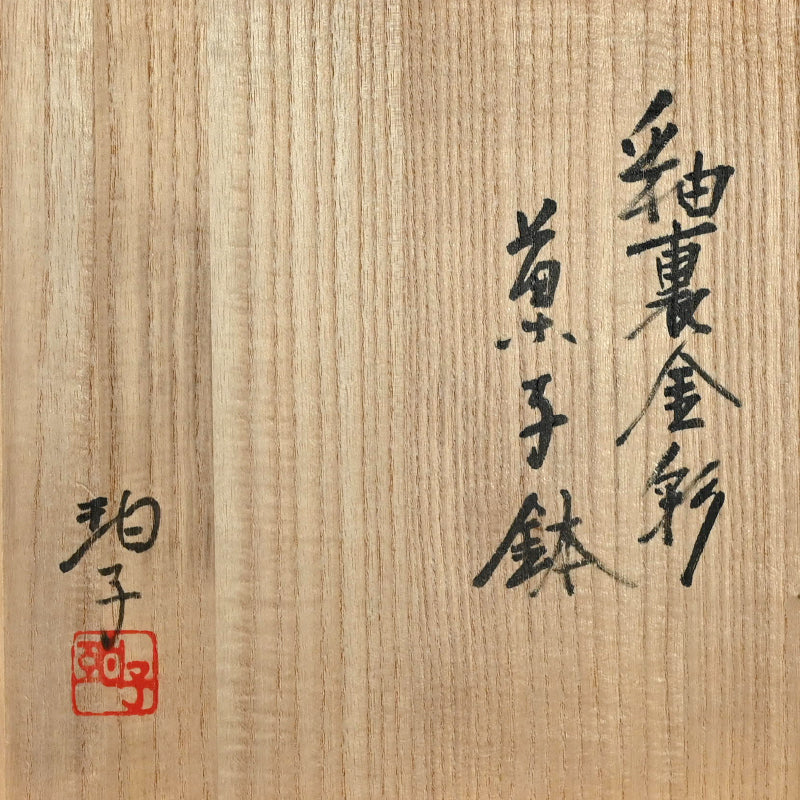 釉裏金彩
菓子鉢
珀子
珀子